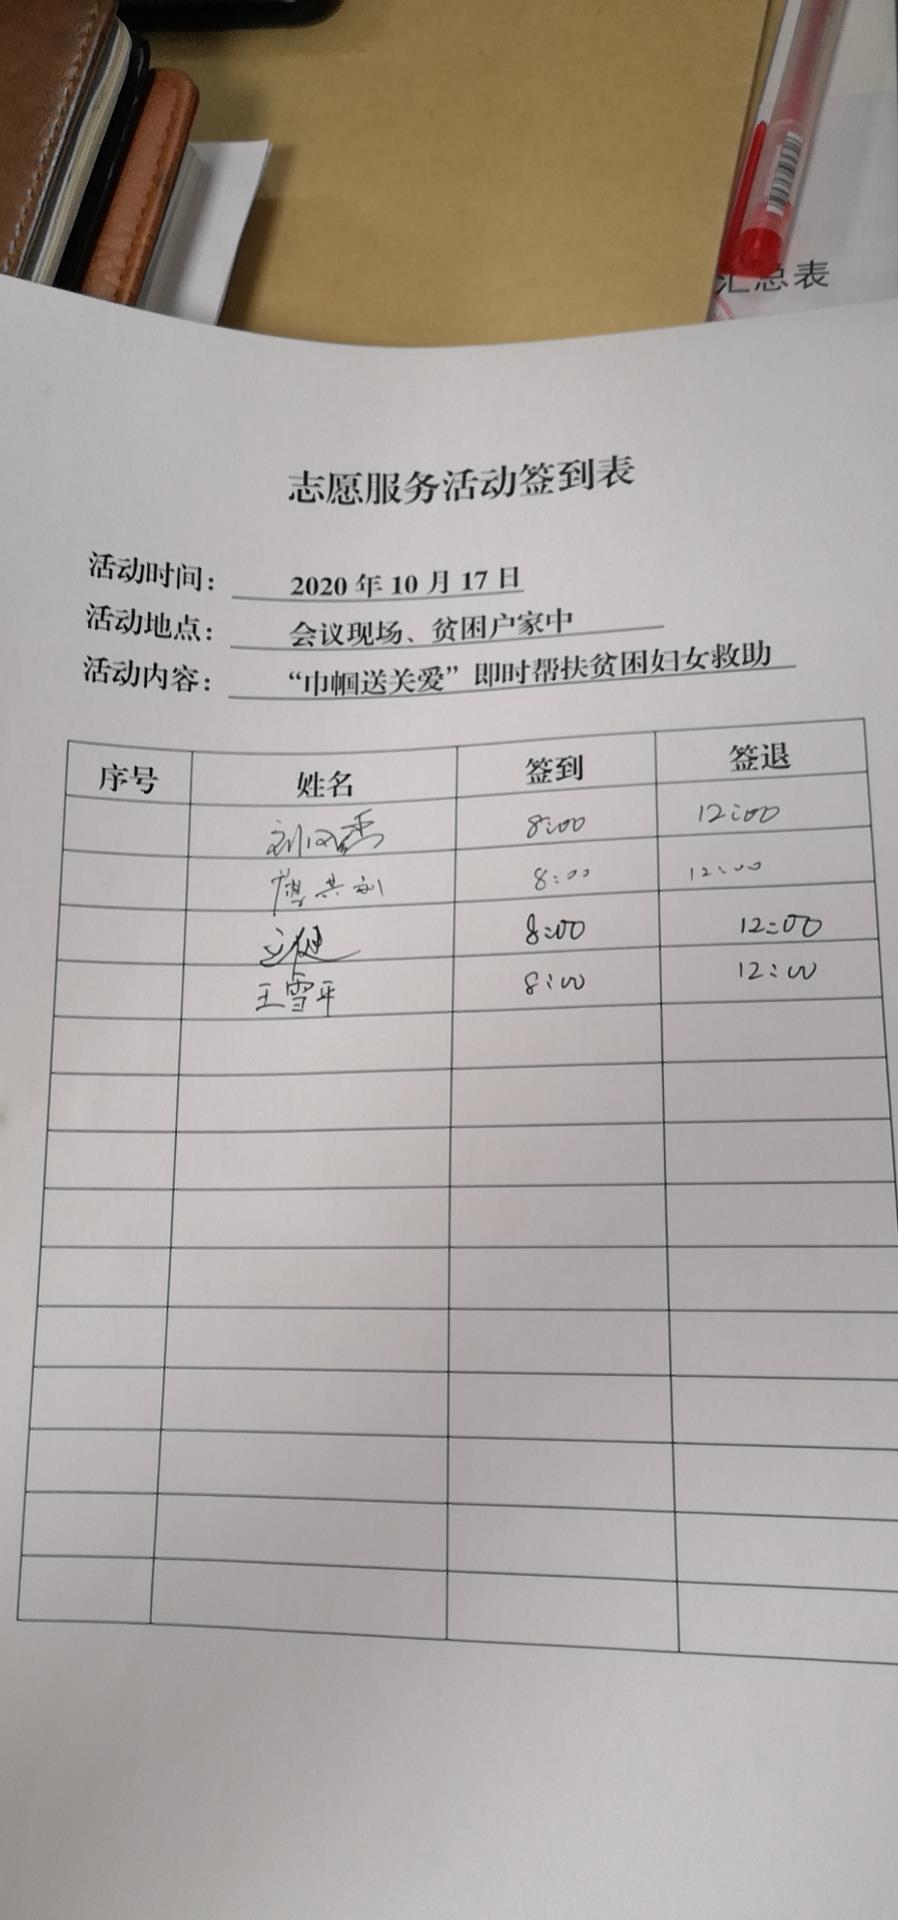 汇总表
志愿服务活动签到表
活动时间: 2020 年 10 月 17 日
活动地点: 会议现场、贫困户家中
活动内容: “巾帼送关爱”即时帮扶贫困妇女救助
序号 姓名 签到 签退
8:00 12:00
8:00 12:00
8:00 12:00
王雪平 8:00 12:00